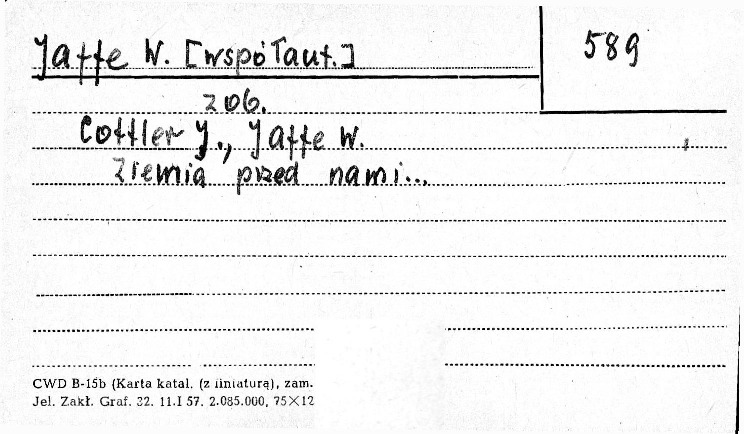 Jaffe W. [współaut.]
589
zob.
Cottler J., Jaffe W.
Ziemia przed nami...
CWD B-15b (Karta katal. (z liniaturą), zam.
Jel. Zakł. Graf. 32. 11.I 57. 2.085.000, 75×12